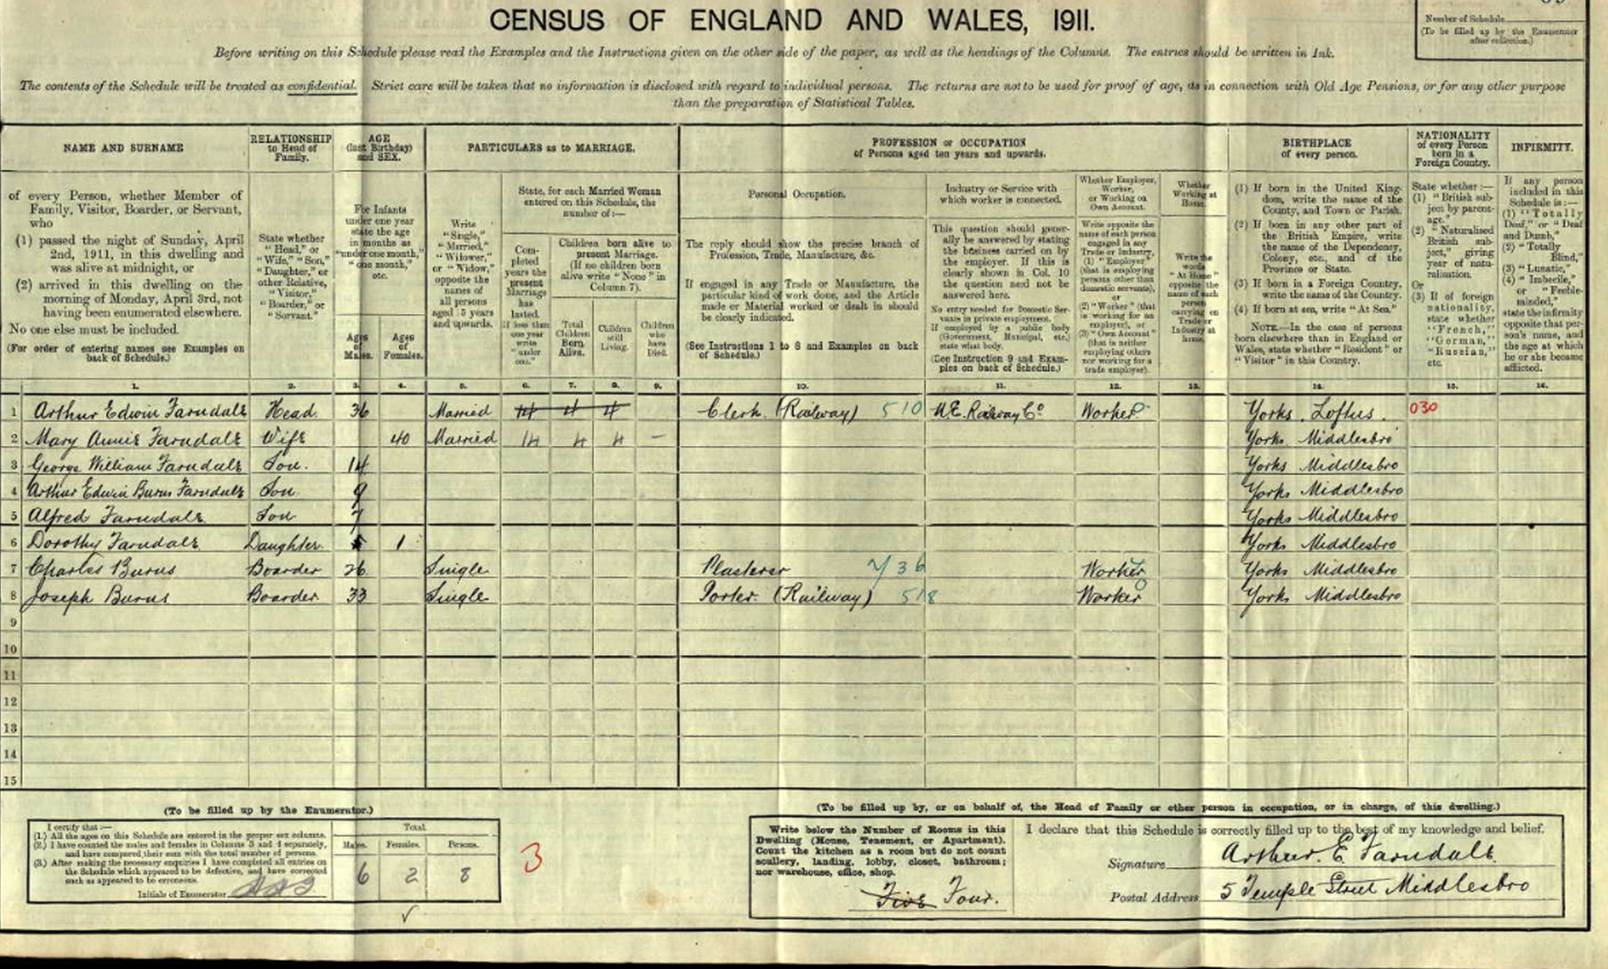 CENSUS OF ENGLAND AND WALES, 1911.
Number of Schedule
(To be filled up by the Enumerator after collection.)
Before writing on this Schedule please read the Examples and the Instructions given on the other side of the paper, as well as the headings of the Columns. The entries should be written in Ink.
The contents of the Schedule will be treated as confidential. Strict care will be taken that no information is disclosed with regard to individual persons. The returns are not to be used for proof of age, as in connection with Old Age Pensions, or for any other purpose
than the preparation of Statistical Tables.
NAME AND SURNAME
RELATIONSHIP to Head of Family.
AGE (last Birthday) and SEX.
PARTICULARS as to MARRIAGE.
PROFESSION or OCCUPATION of Persons aged ten years and upwards.
BIRTHPLACE of every person.
NATIONALITY of every Person born in a Foreign Country.
INFIRMITY.
of every Person, whether Member of
Family, Visitor, Boarder, or Servant,
who
(1) passed the night of Sunday, April
2nd, 1911, in this dwelling and
was alive at midnight, or
(2) arrived in this dwelling on the
morning of Monday, April 3rd, not
having been enumerated elsewhere.
No one else must be included.
(For order of entering names see Examples on
back of Schedule.)
State whether
"Head," or
"Wife," "Son,"
"Daughter," or
other Relative,
"Visitor,"
"Boarder," or
"Servant."
For Infants
under one year
state the age
in months as
"under one month,"
"one month,"
etc.
Ages of Males.
Ages of Females.
Write
"Single,"
"Married,"
"Widower,"
or "Widow,"
opposite the
names of
all persons
aged 15 years
and upwards.
State, for each Married Woman
entered on this Schedule, the
number of:—
Completed years the present Marriage has lasted. If less than one year write "under one."
Children born alive to
present Marriage.
(If no children born
alive write "None" in
Column 7).
Total Children Born Alive.
Children still Living.
Children who have Died.
Personal Occupation.
The reply should show the precise branch of
Profession, Trade, Manufacture, &c.
If engaged in any Trade or Manufacture, the
particular kind of work done, and the Article
made or Material worked or dealt in should
be clearly indicated.
(See Instructions 1 to 8 and Examples on back
of Schedule.)
Industry or Service with
which worker is connected.
This question should gener-
ally be answered by stating
the business carried on by
the employer. If this is
clearly shown in Col. 10
the question need not be
answered here.
No entry needed for Domestic Ser-
vants in private employment.
If employed by a public body
(Government, Municipal, etc.)
state what body.
(See Instruction 9 and Exam-
ples on back of Schedule.)
Whether Employer,
Worker,
or Working on
Own Account.
Write opposite the
name of each person
engaged in any
Trade or Industry,
(1) "Employer"
(that is employing
persons other than
domestic servants),
or
(2) "Worker" (that
is working for an
employer), or
(3) "Own Account"
(that is neither
employing others
nor working for a
trade employer).
Whether
Working at
Home.
Write the
words
"At Home"
opposite the
name of each
person
carrying on
Trade or
Industry at
home.
(1) If born in the United King-
dom, write the name of the
County, and Town or Parish.
(2) If born in any other part of
the British Empire, write
the name of the Dependency,
Colony, etc., and of the
Province or State.
(3) If born in a Foreign Country,
write the name of the Country.
(4) If born at sea, write "At Sea."
NOTE.—In the case of persons
born elsewhere than in England or
Wales, state whether "Resident" or
"Visitor" in this Country.
State whether:—
(1) "British sub-
ject by parent-
age,"
(2) "Naturalised
British sub-
ject," giving
year of natu-
ralisation.
Or
(3) If of foreign
nationality,
state whether
"French,"
"German,"
"Russian,"
etc.
If any person
included in this
Schedule is:—
(1) "Totally
Deaf," or "Deaf
and Dumb,"
(2) "Totally
Blind,"
(3) "Lunatic,"
(4) "Imbecile,"
or "Feeble-
minded,"
state the infirmity
opposite that per-
son's name, and
the age at which
he or she became
afflicted.
1. 2. 3. 4. 5. 6. 7. 8. 9. 10. 11. 12. 13. 14. 15. 16.
1 Arthur Edwin Farndale Head 36 Married 14 4 4 Clerk (Railway) 510 N.E. Railway Co Worker Yorks. Loftus. 030
2 Mary Annie Farndale Wife 40 Married 14 4 4 — Yorks Middlesbro
3 George William Farndale Son. 14 Yorks Middlesbro
4 Arthur Edwin Burns Farndale Son 9 Yorks Middlesbro
5 Alfred Farndale Son 7 Yorks Middlesbro
6 Dorothy Farndale Daughter 1 Yorks Middlesbro
7 Charles Burns Boarder 26 Single Plasterer 736 Worker Yorks Middlesbro
8 Joseph Burns Boarder 33 Single Porter (Railway) 518 Worker Yorks Middlesbro
9
10
11
12
13
14
15
(To be filled up by the Enumerator.)
I certify that:—
(1.) All the ages on this Schedule are entered in the proper sex columns.
(2.) I have counted the males and females in Columns 3 and 4 separately,
and have compared their sum with the total number of persons.
(3.) After making the necessary enquiries I have completed all entries on
the Schedule which appeared to be defective, and have corrected
such as appeared to be erroneous.
Initials of Enumerator
Total
Males. Females. Persons.
6 2 8
3
(To be filled up by, or on behalf of, the Head of Family or other person in occupation, or in charge, of this dwelling.)
Write below the Number of Rooms in this
Dwelling (House, Tenement, or Apartment).
Count the kitchen as a room but do not count
scullery, landing, lobby, closet, bathroom;
nor warehouse, office, shop.
Five Four.
I declare that this Schedule is correctly filled up to the best of my knowledge and belief.
Signature Arthur. E. Farndale.
Postal Address 5 Temple Street Middlesbro